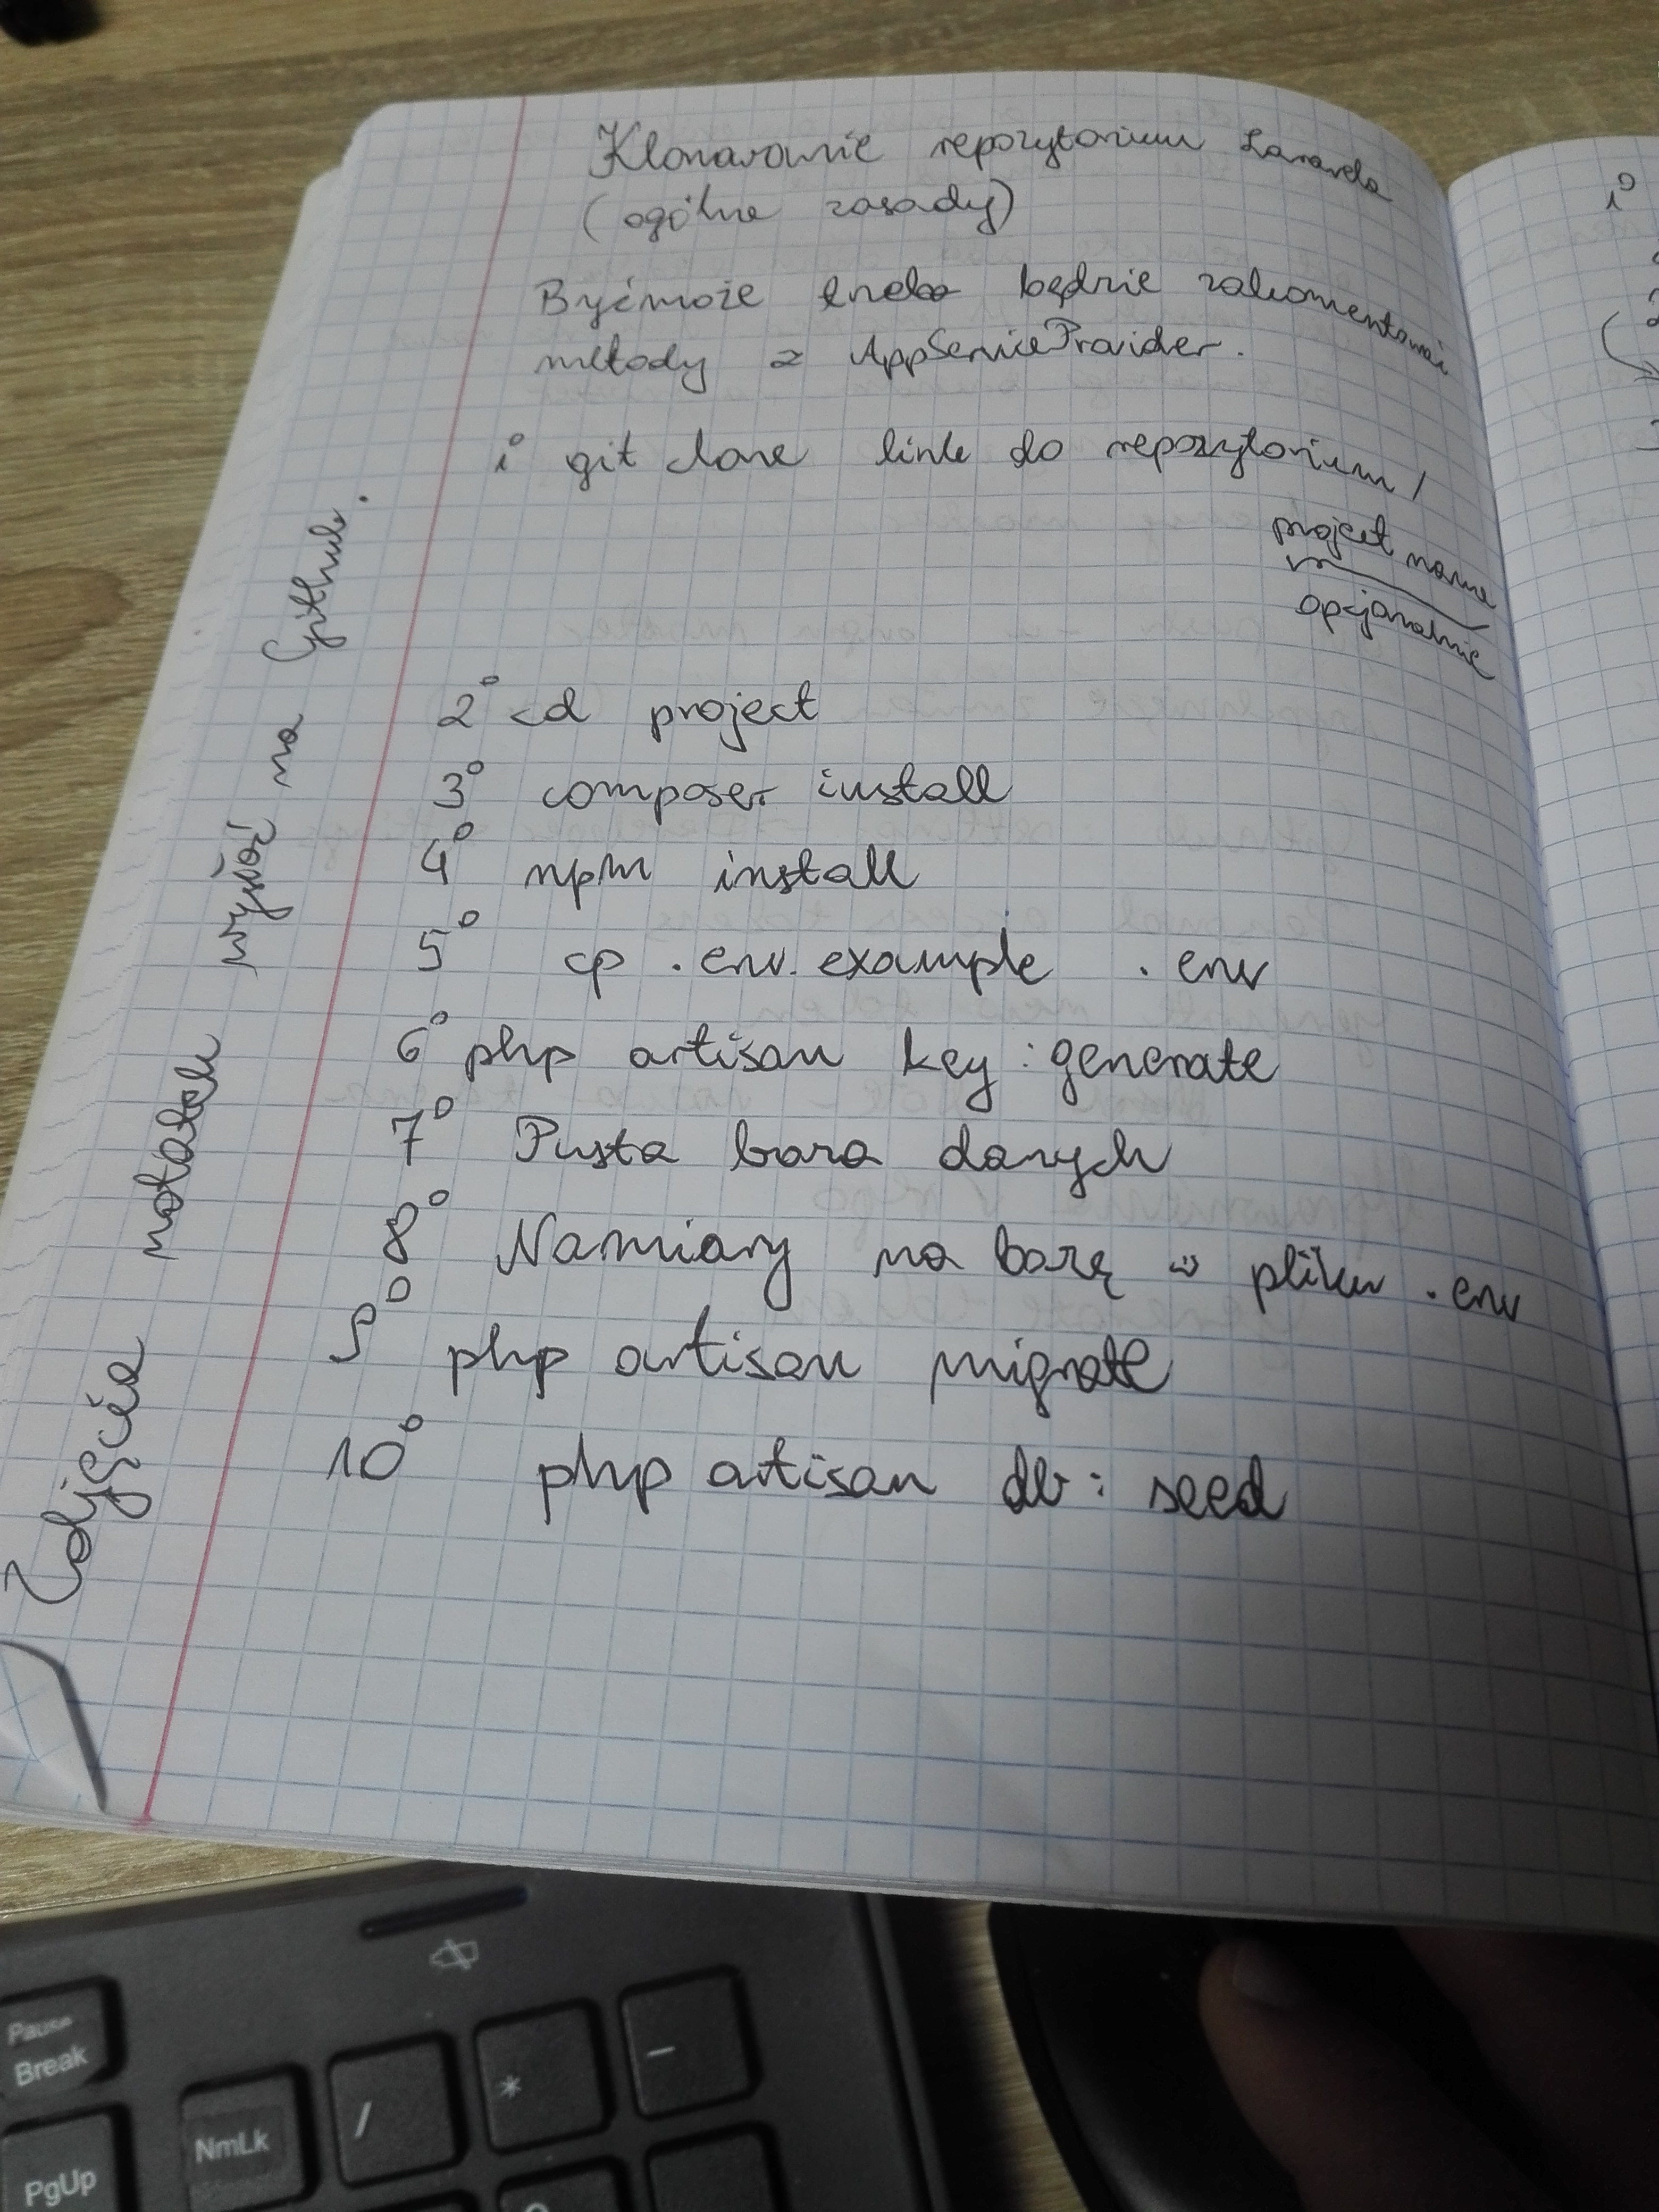 Klonowanie repozytorium Laravela
(ogólne zasady)
Być może trzeba będzie zakomentować
metody z AppServiceProvider.
1° git clone link do repozytorium /
project name
opcjonalnie
2° cd project
3° composer install
4° npm install
5° cp .env.example .env
6° php artisan key:generate
7° Pusta baza danych
8° Namiary na bazę w pliku .env
9° php artisan migrate
10° php artisan db:seed
Zdjęcia notatek wysłać na Github.
1°
Pause
Break
NmLk
/
*
-
PgUp